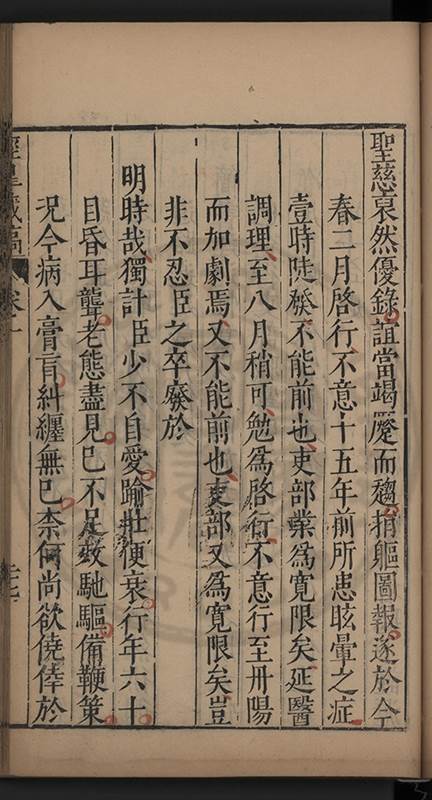 聖慈裒然優錄誼當竭蹷而趨捐軀圖報遂於今
春二月啓行不意十五年前所患眩暈之症
壹時陡發不能前也吏部業爲寛限矣延醫
調理至八月稍可勉爲啓行不意行至丹陽
而加劇焉又不能前也吏部又爲寛限矣豈
非不忍臣之卒廢於
明時哉獨計臣少不自愛踰壯便衰行年六十
目昏耳聾老態盡見已不足效馳驅備鞭策
况今病入膏肓糾纒無已柰何尚欲僥倖於
卷一